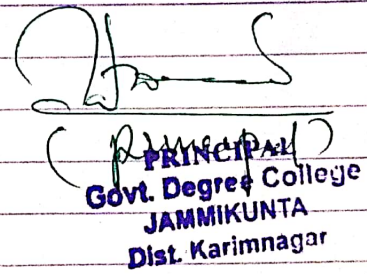 (Principal)
PRINCIPAL
Govt. Degree College
JAMMIKUNTA
Dist. Karimnagar